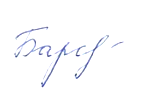 Барсу-